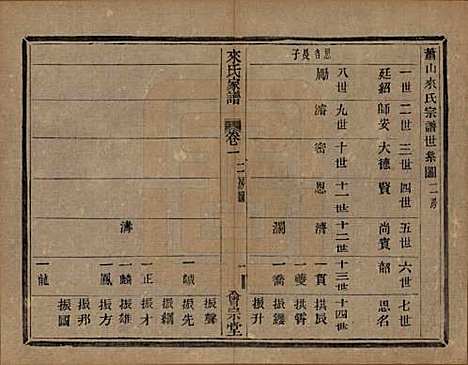 蕭山來氏宗譜世系圖二房
一世 二世 三世 四世 五世 六世 七世
廷紹 師安 大德 賢 尚賓 韶 思名
思名長子
八世 九世 十世 十一世 十二世 十三世 十四世
勵 濬 密 恩 濟 一貫 拱辰
一夔 拱霄
瀾 一喬 振鑁
振升
來氏家譜 卷一 二房圖 一 會宗堂
振聲
一誠 振先
一正 振綱
振才
濤 一麟 振雄
一鳳 振方
振邦
一龍 振國